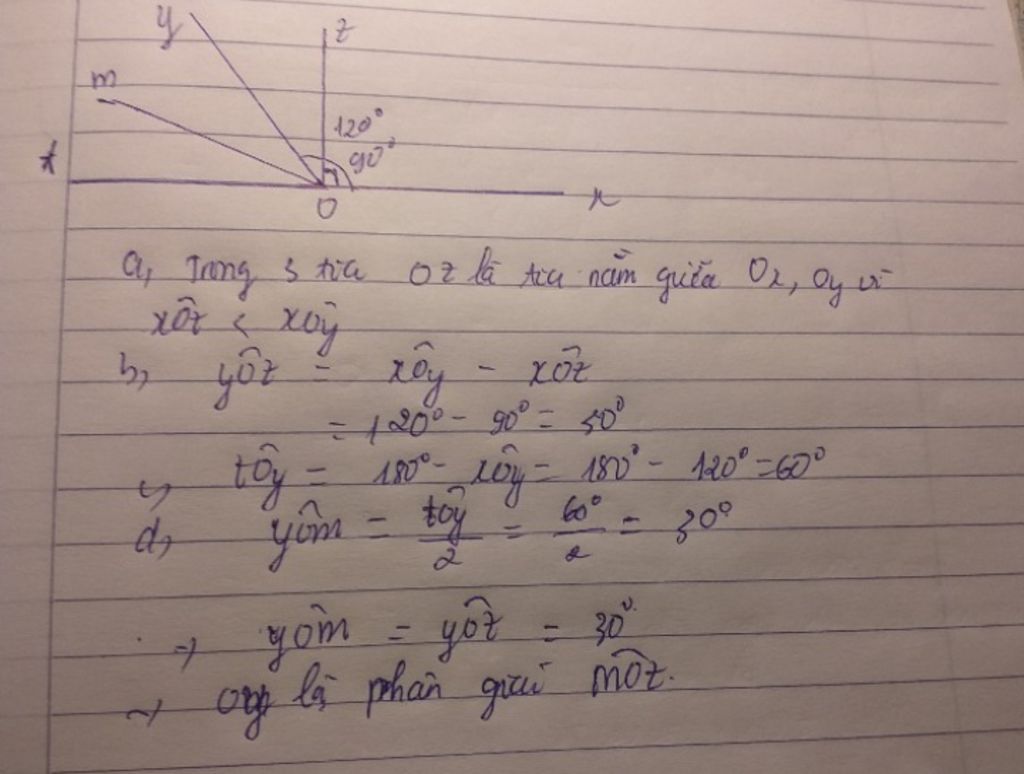 y
z
m
120°
90°
t
x
O
a, Trong 3 tia Oz là tia nằm giữa Ox, Oy vì
xÔz < xÔy
b, yÔz = xÔy - xÔz
= 120° - 90° = 30°
c, tÔy = 180° - xÔy = 180° - 120° = 60°
d, yÔm = tÔy/2 = 60°/2 = 30°
→ yÔm = yÔz = 30°
→ Oy là phân giác mÔz.